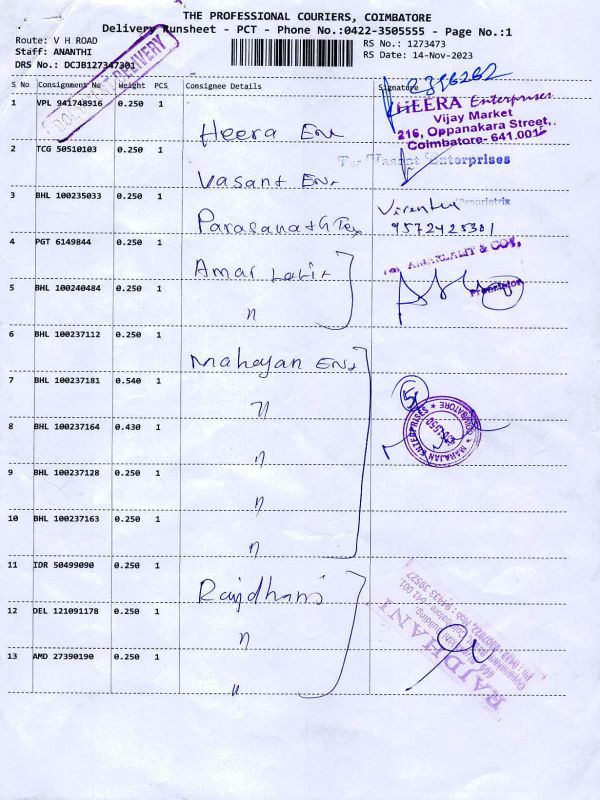 THE PROFESSIONAL COURIERS, COIMBATORE
Delivery Runsheet - PCT - Phone No.:0422-3505555 - Page No.:1
Route: V H ROAD
Staff: ANANTHI
DRS No.: DCJB127347301
RS No.: 1273473
RS Date: 14-Nov-2023
DELIVERY
S No Consignment No Weight PCS Consignee Details Signature
1 VPL 941748916 0.250 1 Heera Ent
HEERA Enterprises
Vijay Market
216, Oppanakara Street,
Coimbatore- 641.001
2 TCG 50510103 0.250 1 Vasant Ent
For Vasant Enterprises
Proprietrix
3 BHL 100235033 0.250 1 Parasanath Tex
9572425301
4 PGT 6149844 0.250 1 Amar Lalit
For AMARLALIT & CO.,
Proprietor
5 BHL 100240484 0.250 1 "
6 BHL 100237112 0.250 1 Mahajan Ent
7 BHL 100237181 0.540 1 "
5
MAHAJAN ENTERPRISES * COIMBATORE *
8 BHL 100237164 0.430 1 "
9 BHL 100237128 0.250 1 "
10 BHL 100237163 0.250 1 "
11 IDR 50499090 0.250 1 Rajdhani
RAJDHANI
12 DEL 121091178 0.250 1 "
13 AMD 27390190 0.250 1 "